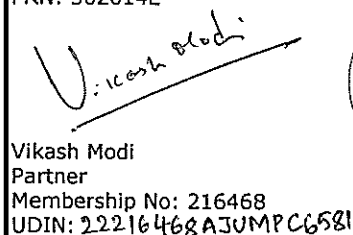 Vikash Modi
Vikash Modi
Partner
Membership No: 216468
UDIN: 22216468AJUMPC6581